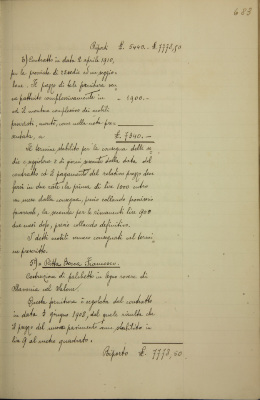 683
Riporti £. 5440.- £. 7773,50
6) Contratto in data 2 aprile 1910,
per la provvista di sedie ed un seggio-
lone. Il prezzo di tale fornitura ven-
ne pattuito complessivamente in - 1900.-
ed il montare complessivo dei mobili
provvisti, montò, come nella nota pre-
sentata, a £. 7340.-
Il termine stabilito per la consegna delle se-
die e seggiolone è di giorni venti dalla data del
contratto ed il pagamento del relativo prezzo do-
farsi in due rate: la prima di lire 1000 entro
un mese dalla consegna, previo collaudo provvisorio
favorevole, la seconda per le rimanenti lire 900
due mesi dopo, previo collaudo definitivo.
I detti mobili vennero consegnati nel termi-
ne prescritto.
5° Ditta Francesco.
Costruzione di palchetto in legno rovere di
Slavonia nel Salone
Questa fornitura è regolata dal contratto
in data 3 giugno 1908, dal quale risulta che
il prezzo del nuovo pavimento venne stabilito in
lire 9 al metro quadrato.
Riporto £. 7773,50